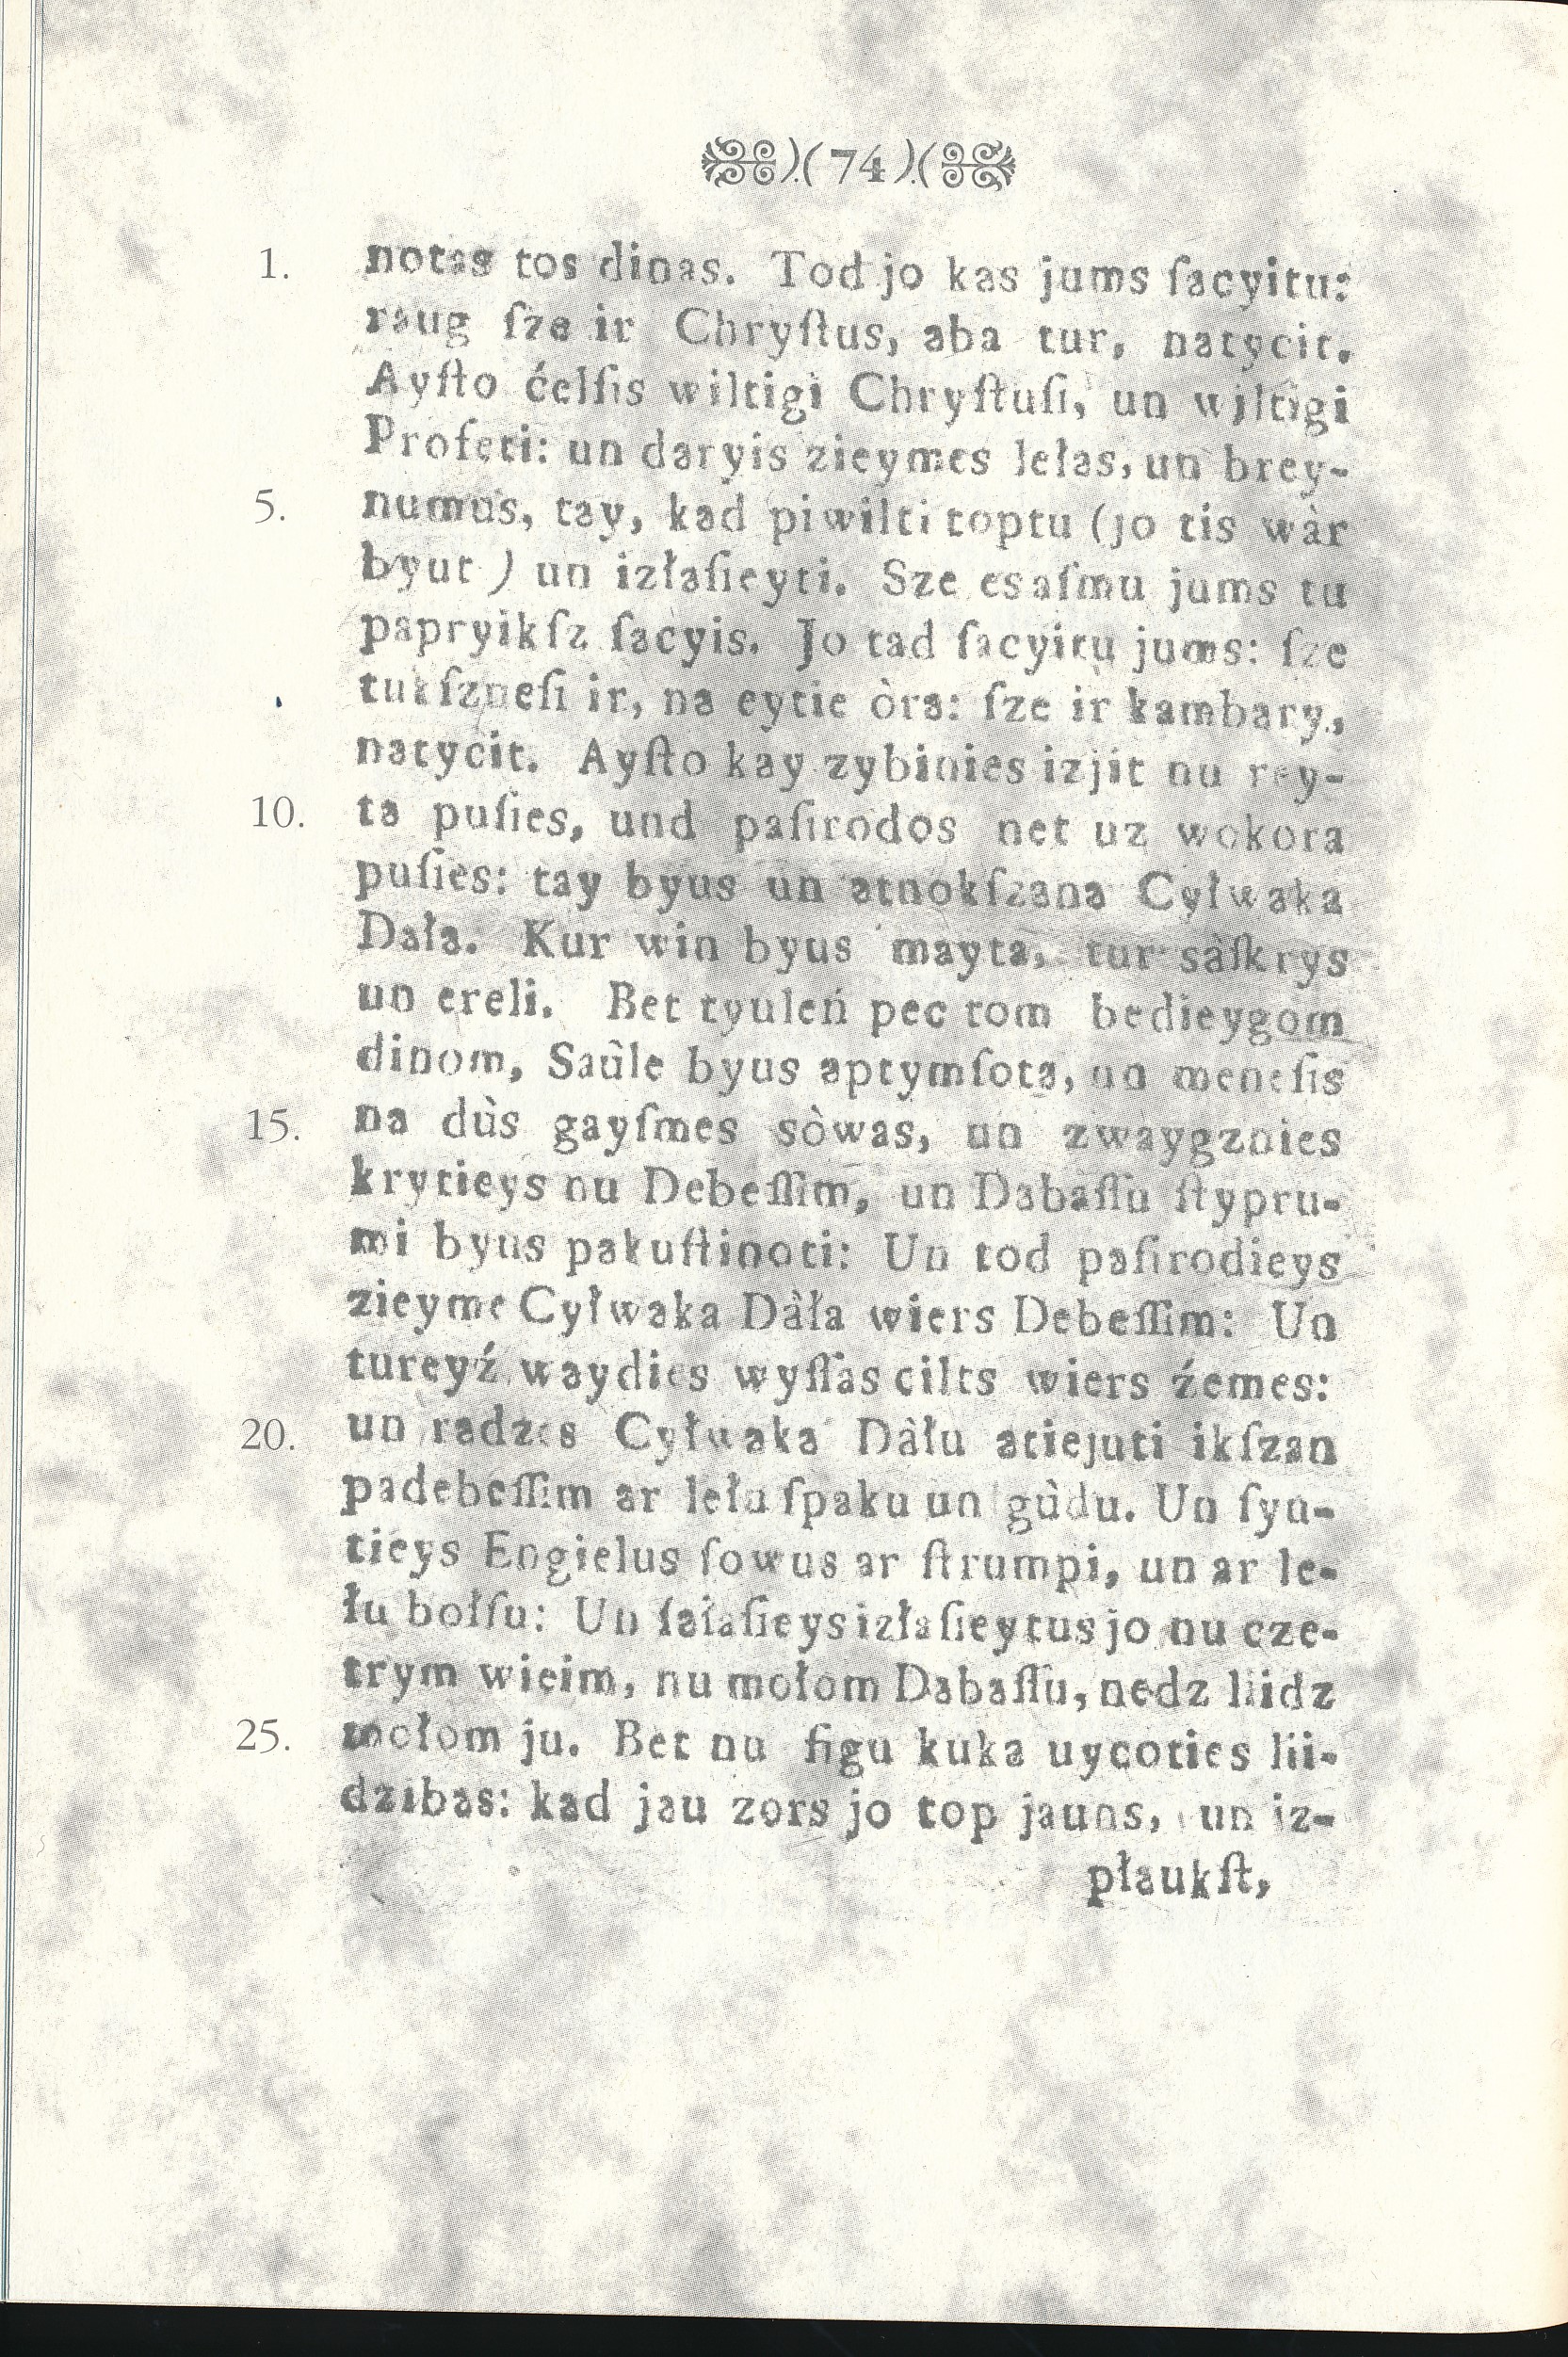 ).( 74 ).(
1. notas tos dinas. Tod jo kas jums ſacyitu:
raug ſze ir Chryſtus, aba tur, natycit.
Ayſto ćelſis wiltigi Chryſtuſi, un wiltigi
Profeti: un daryis zieymes lełas, un brey-
5. numus, tay, kad piwilti toptu (jo tis wàr
byut ) un izłaſieyti. Sze es aſmu jums tu
papryikſz ſacyis. Jo tad ſacyitu jums: ſze
tukſzneſi ir, na eytie òra: ſze ir kambary,
natycit. Ayſto kay zybinies izjit nu rey-
10. ta puſies, und paſirodos net uz wokora
puſies: tay byus un atnokſzana Cyłwaka
Dała. Kur win byus mayta, tur sàſkrys
un ereli. Bet tyuleń pec tom bedieygom
dinom, Saûle byus aptymſota, un meneſis
15. na dùs gayſmes sòwas, un zwaygznies
krytieys nu Debeſſim, un Dabaſſu ſtypru-
mi byus pakuſtinoti: Un tod paſirodieys
zieyme Cyłwaka Dàła wiers Debeſſim: Un
tureyź waydies wyſſas cilts wiers źemes:
20. un radzes Cyłwaka Dâłu atiejuti ikſzan
padebeſſim ar lełu ſpaku un gùdu. Un ſyu-
tieys Engielus ſowus ar ſtrumpi, un ar le-
łu bołſu: Un ſałaſieys izłaſieytus jo nu cze-
trym wieim, nu mołom Dabaſſu, nedz liidz
25. mołom ju. Bet nu figu kuka uycoties lii-
dzibas: kad jau zors jo top jauns, un iz-
płaukſt,